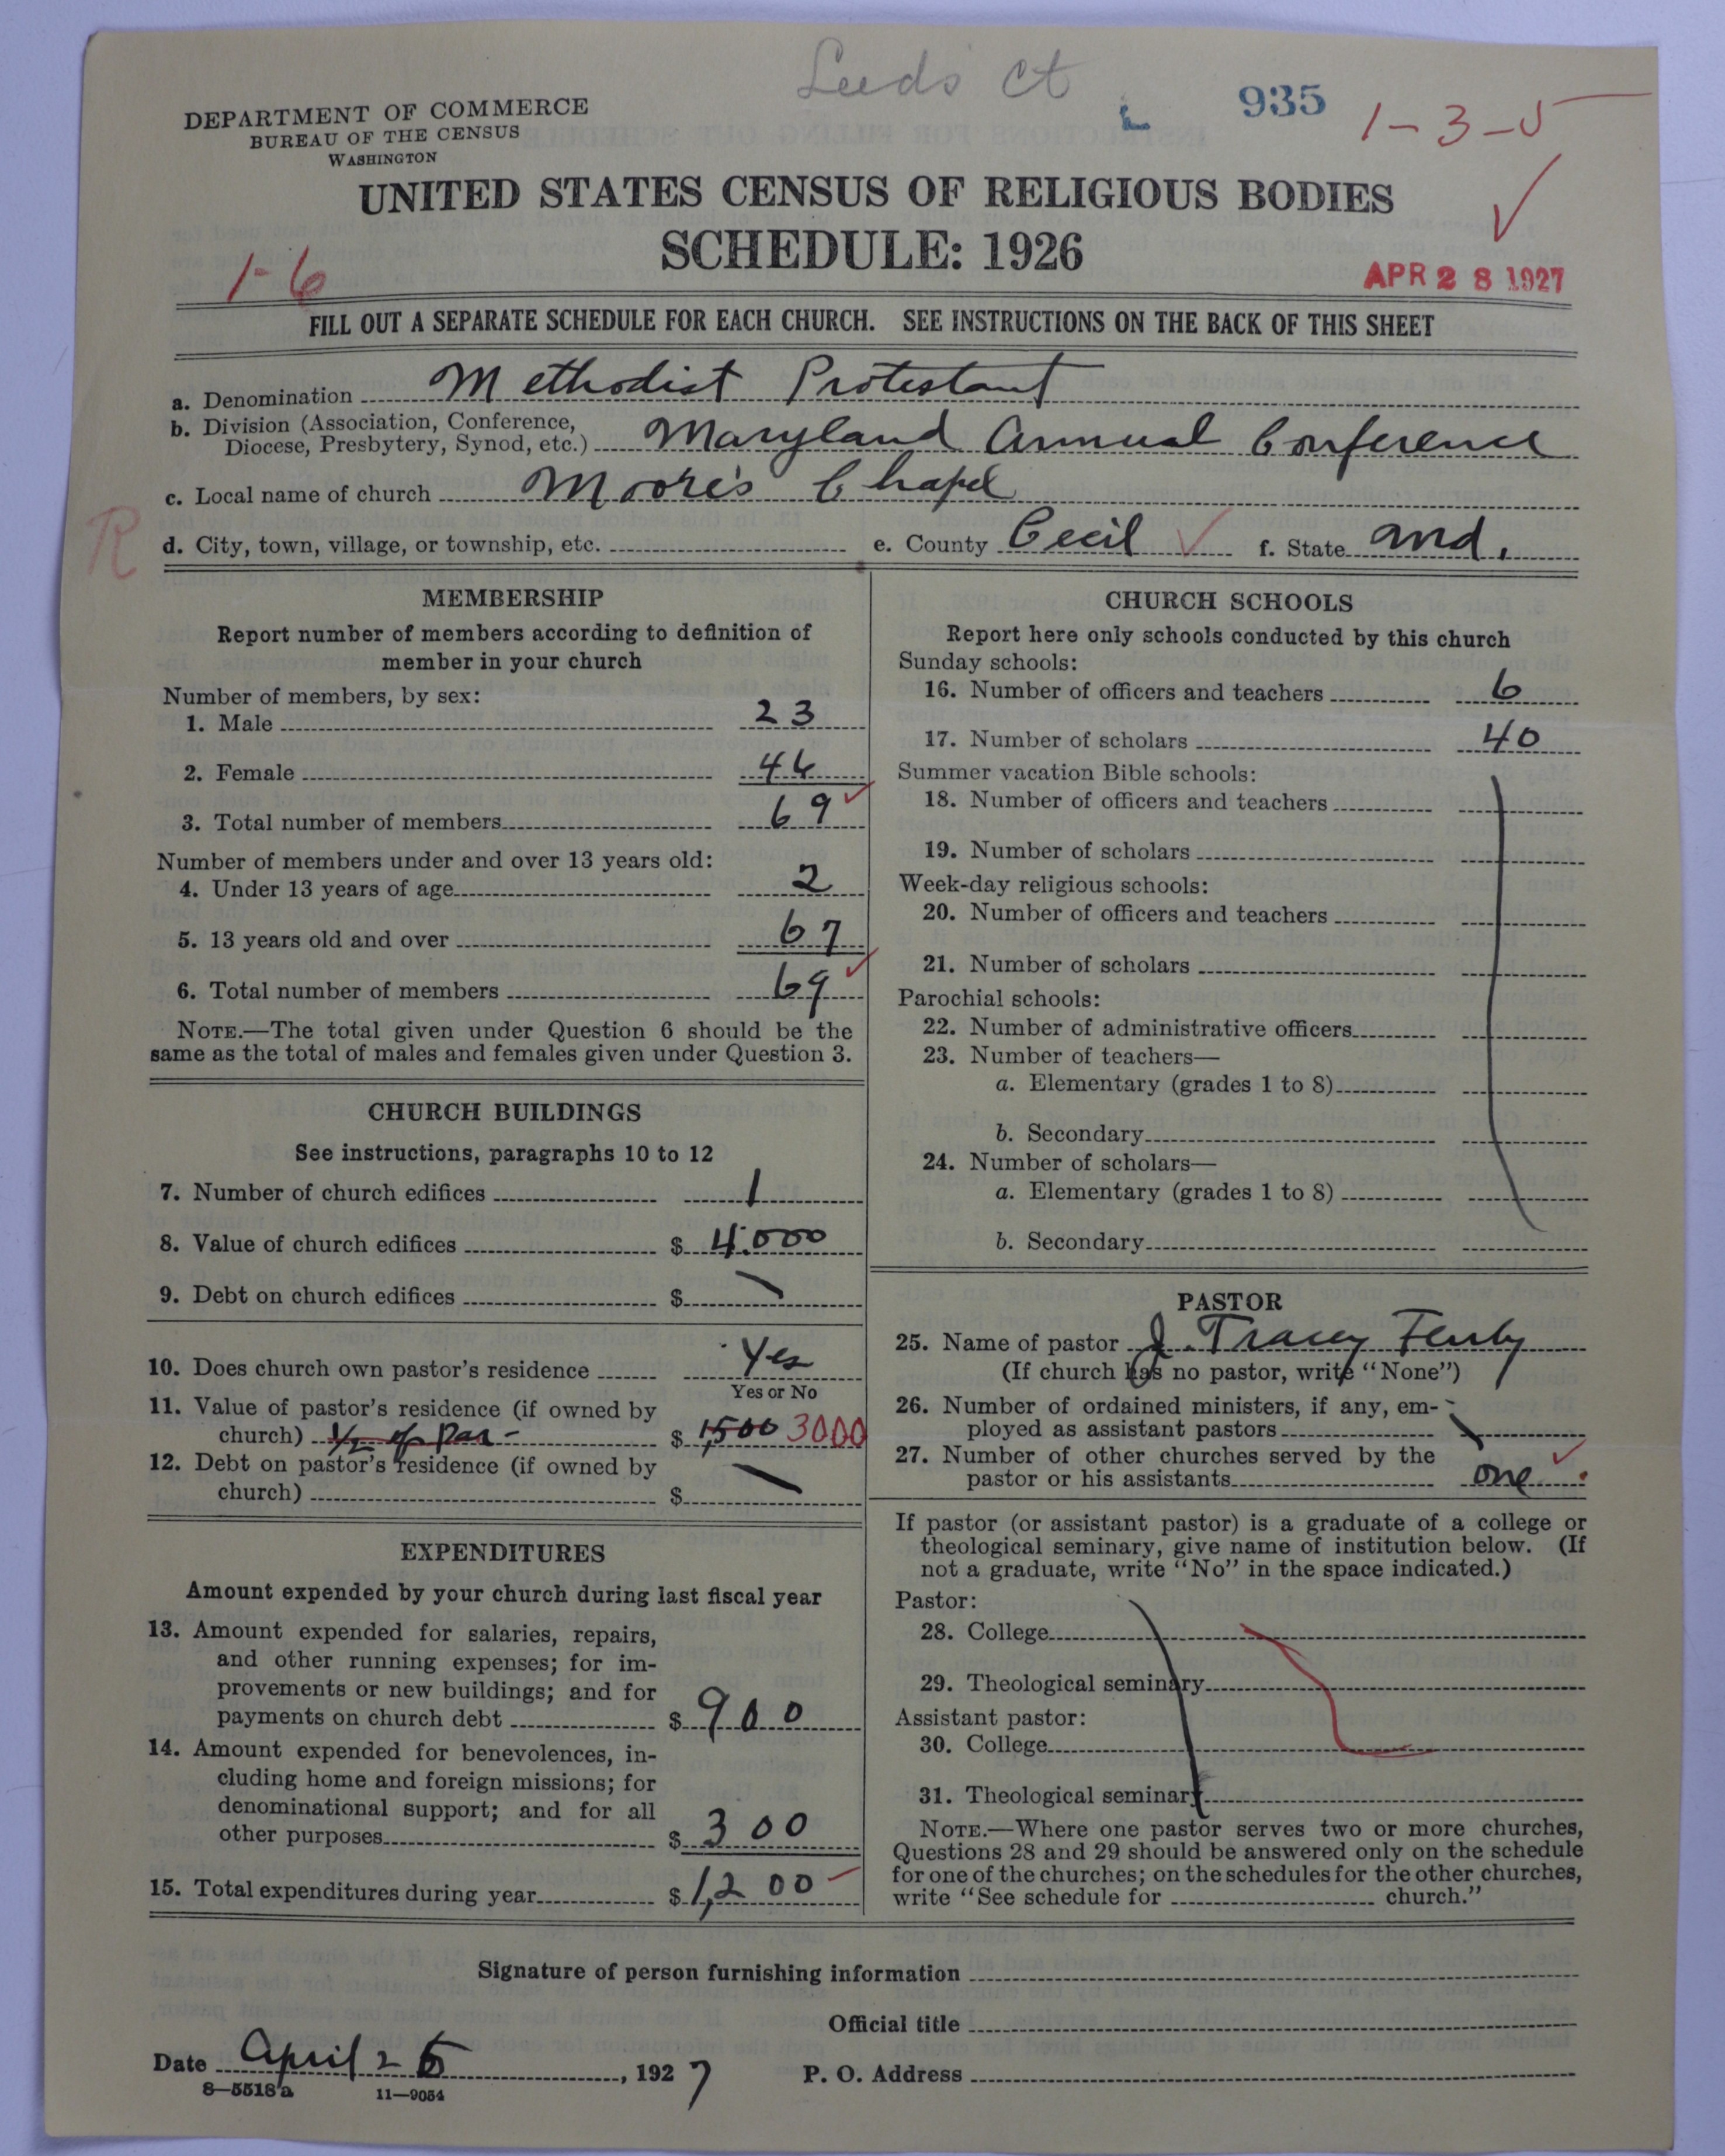 Leeds Ct
L 935 1-3-5
DEPARTMENT OF COMMERCE
BUREAU OF THE CENSUS
WASHINGTON
UNITED STATES CENSUS OF RELIGIOUS BODIES
SCHEDULE: 1926
1-6
APR 28 1927
FILL OUT A SEPARATE SCHEDULE FOR EACH CHURCH. SEE INSTRUCTIONS ON THE BACK OF THIS SHEET
a. Denomination Methodist Protestant
b. Division (Association, Conference,
Diocese, Presbytery, Synod, etc.) Maryland Annual Conference
c. Local name of church Moore's Chapel
R
d. City, town, village, or township, etc. e. County Cecil f. State Md.
MEMBERSHIP
Report number of members according to definition of
member in your church
Number of members, by sex:
1. Male 23
2. Female 46
3. Total number of members 69
Number of members under and over 13 years old:
4. Under 13 years of age 2
5. 13 years old and over 67
6. Total number of members 69
NOTE.—The total given under Question 6 should be the
same as the total of males and females given under Question 3.
CHURCH BUILDINGS
See instructions, paragraphs 10 to 12
7. Number of church edifices 1
8. Value of church edifices $ 4,000
9. Debt on church edifices $
10. Does church own pastor's residence Yes
Yes or No
11. Value of pastor's residence (if owned by
church) 1/2 of Par- $ 1,500 3000
12. Debt on pastor's residence (if owned by
church) $
EXPENDITURES
Amount expended by your church during last fiscal year
13. Amount expended for salaries, repairs,
and other running expenses; for im-
provements or new buildings; and for
payments on church debt $ 900
14. Amount expended for benevolences, in-
cluding home and foreign missions; for
denominational support; and for all
other purposes $ 300
15. Total expenditures during year $ 1,200
CHURCH SCHOOLS
Report here only schools conducted by this church
Sunday schools:
16. Number of officers and teachers 6
17. Number of scholars 40
Summer vacation Bible schools:
18. Number of officers and teachers
19. Number of scholars
Week-day religious schools:
20. Number of officers and teachers
21. Number of scholars
Parochial schools:
22. Number of administrative officers
23. Number of teachers—
a. Elementary (grades 1 to 8)
b. Secondary
24. Number of scholars—
a. Elementary (grades 1 to 8)
b. Secondary
PASTOR
25. Name of pastor J. Tracey
(If church has no pastor, write "None")
26. Number of ordained ministers, if any, em-
ployed as assistant pastors
27. Number of other churches served by the
pastor or his assistants one
If pastor (or assistant pastor) is a graduate of a college or
theological seminary, give name of institution below. (If
not a graduate, write "No" in the space indicated.)
Pastor:
28. College
29. Theological seminary
Assistant pastor:
30. College
31. Theological seminary
NOTE.—Where one pastor serves two or more churches,
Questions 28 and 29 should be answered only on the schedule
for one of the churches; on the schedules for the other churches,
write "See schedule for church."
Signature of person furnishing information
Official title
Date April 26, 1927 P. O. Address
8—5518a 11—9054